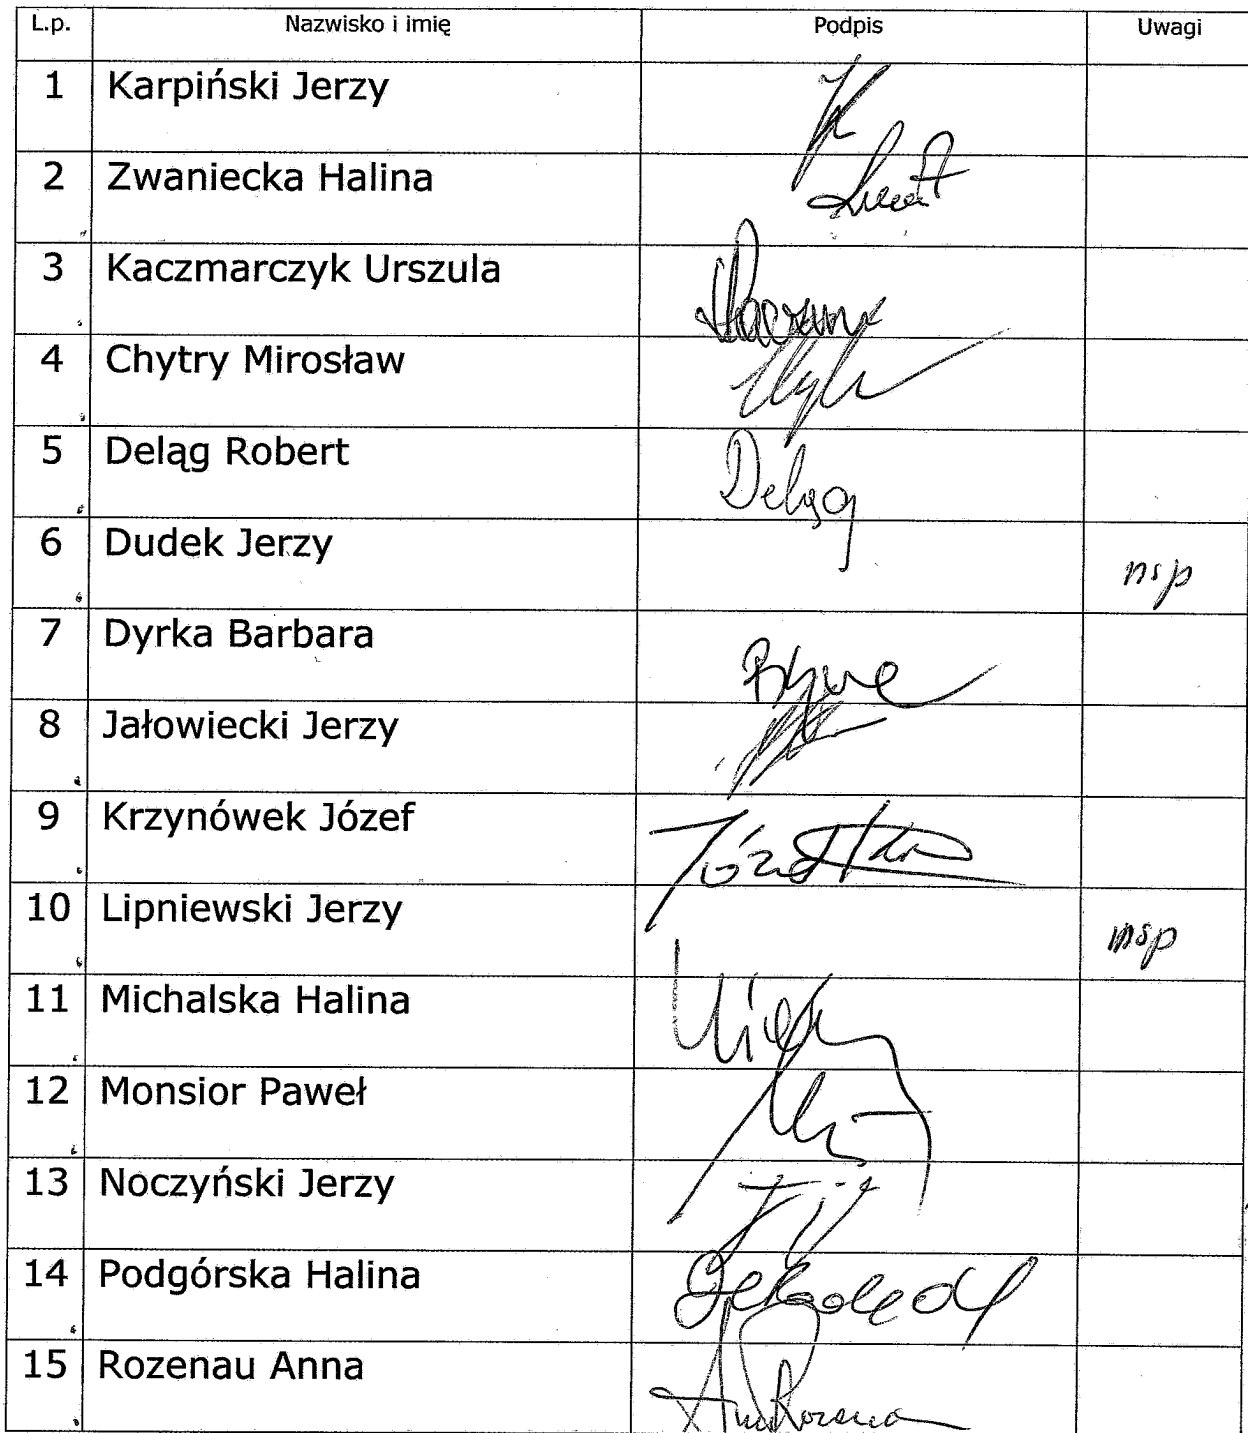 L.p. Nazwisko i imię Podpis Uwagi
1 Karpiński Jerzy
2 Zwaniecka Halina
3 Kaczmarczyk Urszula
4 Chytry Mirosław
5 Deląg Robert Deląg
6 Dudek Jerzy nsp
7 Dyrka Barbara
8 Jałowiecki Jerzy
9 Krzynówek Józef
10 Lipniewski Jerzy nsp
11 Michalska Halina
12 Monsior Paweł
13 Noczyński Jerzy
14 Podgórska Halina
15 Rozenau Anna